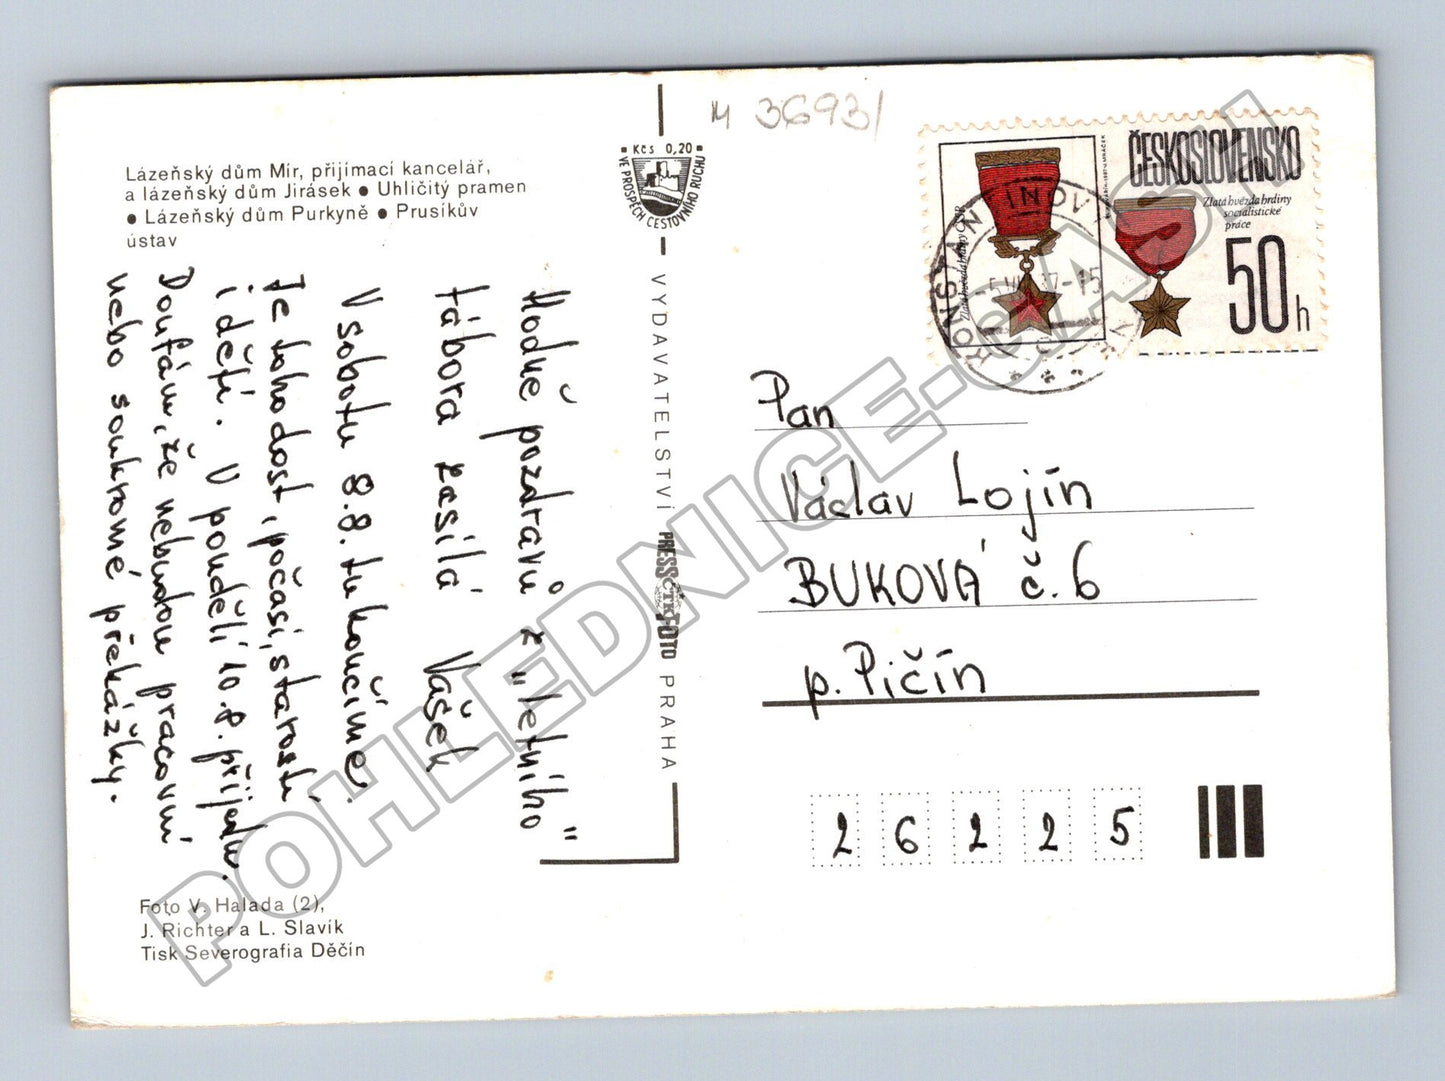 Lázeňský dům Mír, přijímací kancelář,
a lázeňský dům Jirásek ● Uhličitý pramen
● Lázeňský dům Purkyně ● Prusíkův
ústav
Hodně pozdravů z „letního"
tábora zasílá Vašek
V sobotu 8.8. tu končíme.
Je toho dost, počasí, starosti
i děti. V pondělí 10.8. přijedu.
Doufám, že nebudou pracovní
nebo soukromé překážky.
Foto V. Halada (2),
J. Richter a L. Slavík
Tisk Severografia Děčín
Kčs 0,20
VE PROSPĚCH CESTOVNÍHO RUCHU
VYDAVATELSTVÍ PRESSFOTO PRAHA
ČTK
M 36931
ČESKOSLOVENSKO
Zlatá hvězda hrdiny
socialistické
práce
Zlatá hvězda hrdiny ČSSR
50h
Pan
Václav Lojín
BUKOVÁ č. 6
p. Pičín
26225
POHLEDNICE-CASH